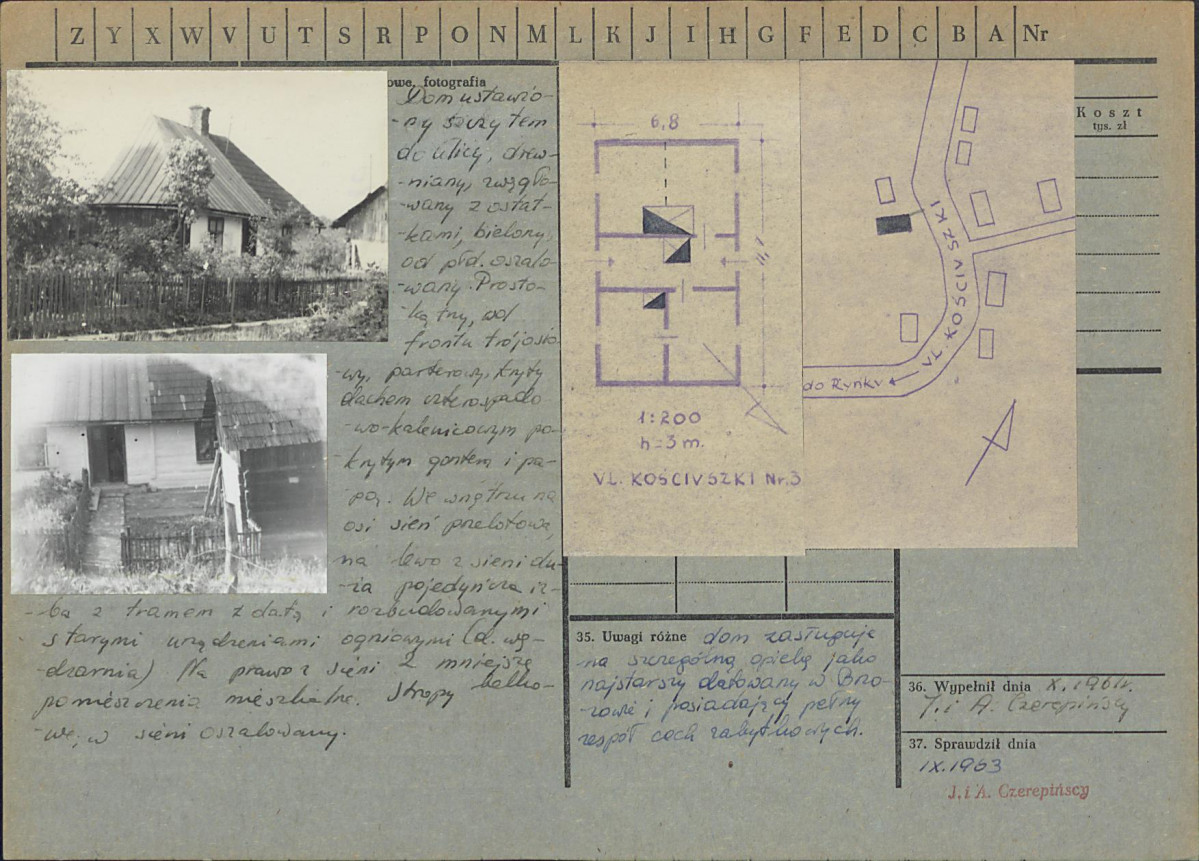 Z Y X W V U T S R P O N M L K J I H G F E D C B A Nr
owe, fotografia
Dom ustawio-
-ny szczytem
do ulicy, drew-
-niany, zwęgło-
-wany z ostat-
-kami, bielony,
od płd. oszalo-
-wany. Prosto-
-kątny, od
frontu trójosio-
-wy, parterowy, kryty
dachem czterospado-
-wo-kalenicowym po-
-krytym gontem i pa-
-pą. We wnętrzu na
osi sień przelotowa,
na lewo z sieni du-
-ża pojedyńcza iz-
-ba z tramem z datą i rozbudowanymi
starymi urządzeniami ogniowymi (d. wę-
-dzarnia) Na prawo z sieni 2 mniejsze
pomieszczenia mieszkalne. Stropy belko-
-we, w sieni oszalowany.
6,8
11,1
1:200
h=3m.
UL. KOŚCIUSZKI Nr.3
UL. KOŚCIUSZKI
do Rynku
Koszt
tys. zł
35. Uwagi różne dom zasługuje
na szczególną opiekę jako
najstarszy datowany w Brzo-
-zowie i posiadający pełny
zespół cech zabytkowych.
36. Wypełnił dnia X.1961r.
J. i A. Czerepińscy
37. Sprawdził dnia
IX.1963
J. i A. Czerepińscy